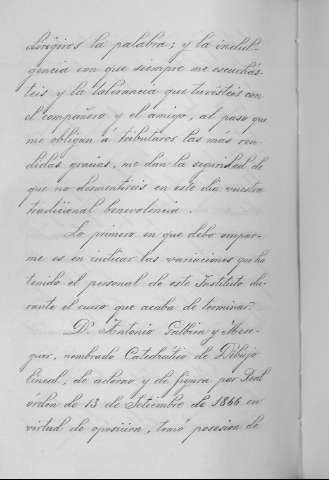 dirigiros la palabra; y la indul-
gencia con que siempre me escuchás-
teis y la tolerancia que tuvísteis con
el compañero y el amigo, al paso que
me obligan á tributaros las más ren-
didas gracias, me dan la seguridad de
que no desmentireis en este dia vuestra
tradicional benevolencia.
Lo primero en que debo ocupar-
me es en indicar las variaciones que ha
tenido el personal de este Instituto du-
rante el curso que acaba de terminar.
D. Antonio Galbien y Mese-
guer, nombrado Catedratico de Dibujo
lineal, de adorno y de figura por Real
órden de 13 de Setiembre de 1866 en
virtud de oposicion, tomó posesion de